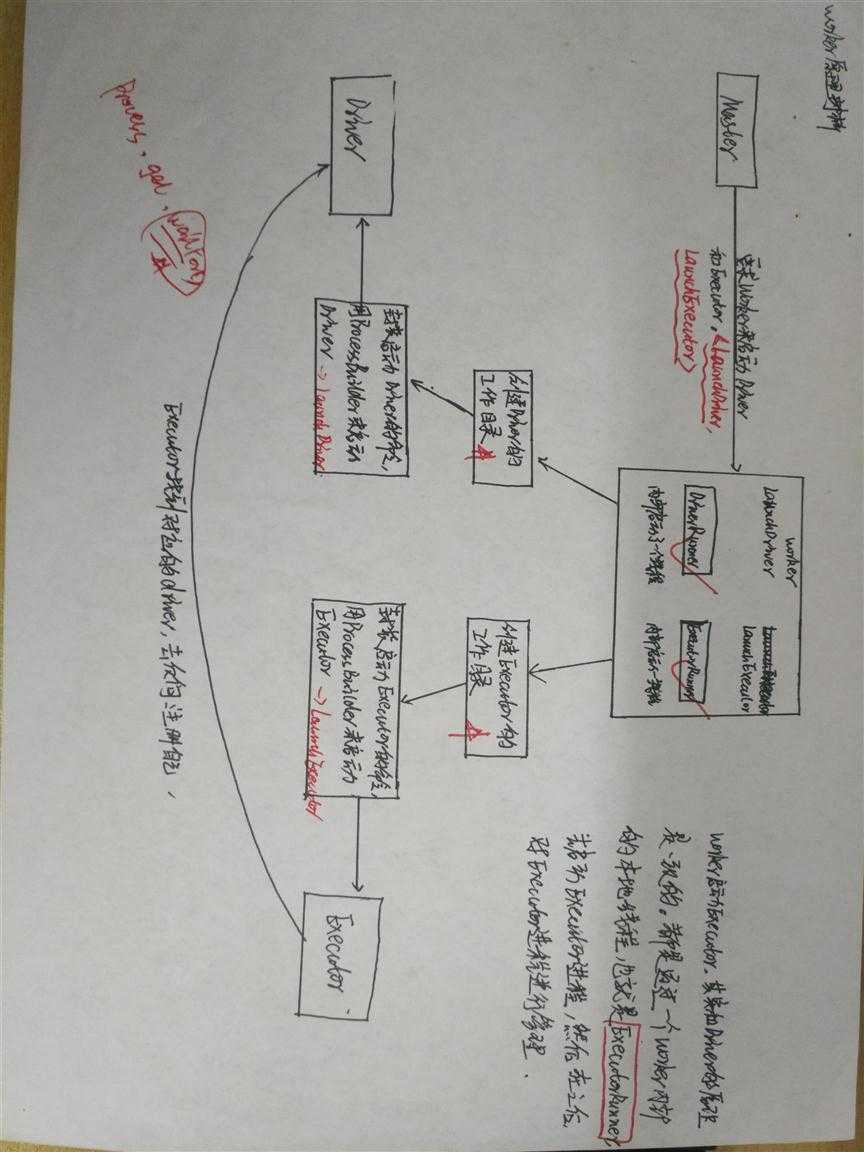 worker原理剖析
Master
要求Worker来启动Driver
和Executor,<LaunchDriver,
LaunchExecutor>
worker
LaunchDriver
LaunchExecutor
DriverRunner
ExecutorRunner
内部启动了一个线程
内部启动一线程
创建Driver的
工作目录
创建Executor的
工作目录
封装启动Driver的命令,
用ProcessBuilder来启动
Driver → LaunchDriver
封装启动Executor的命令,
用ProcessBuilder来启动
Executor → LaunchExecutor
Driver
Executor
Executor找到对应的driver,去反向注册自己,
worker启动Executor,其实和Driver的原理
是一致的。都是通过一个worker内部
的本地线程,也就是ExecutorRunner
来启动Executor进程,然后在之后,
对Executor进程进行管理.
process, get, waitFor()